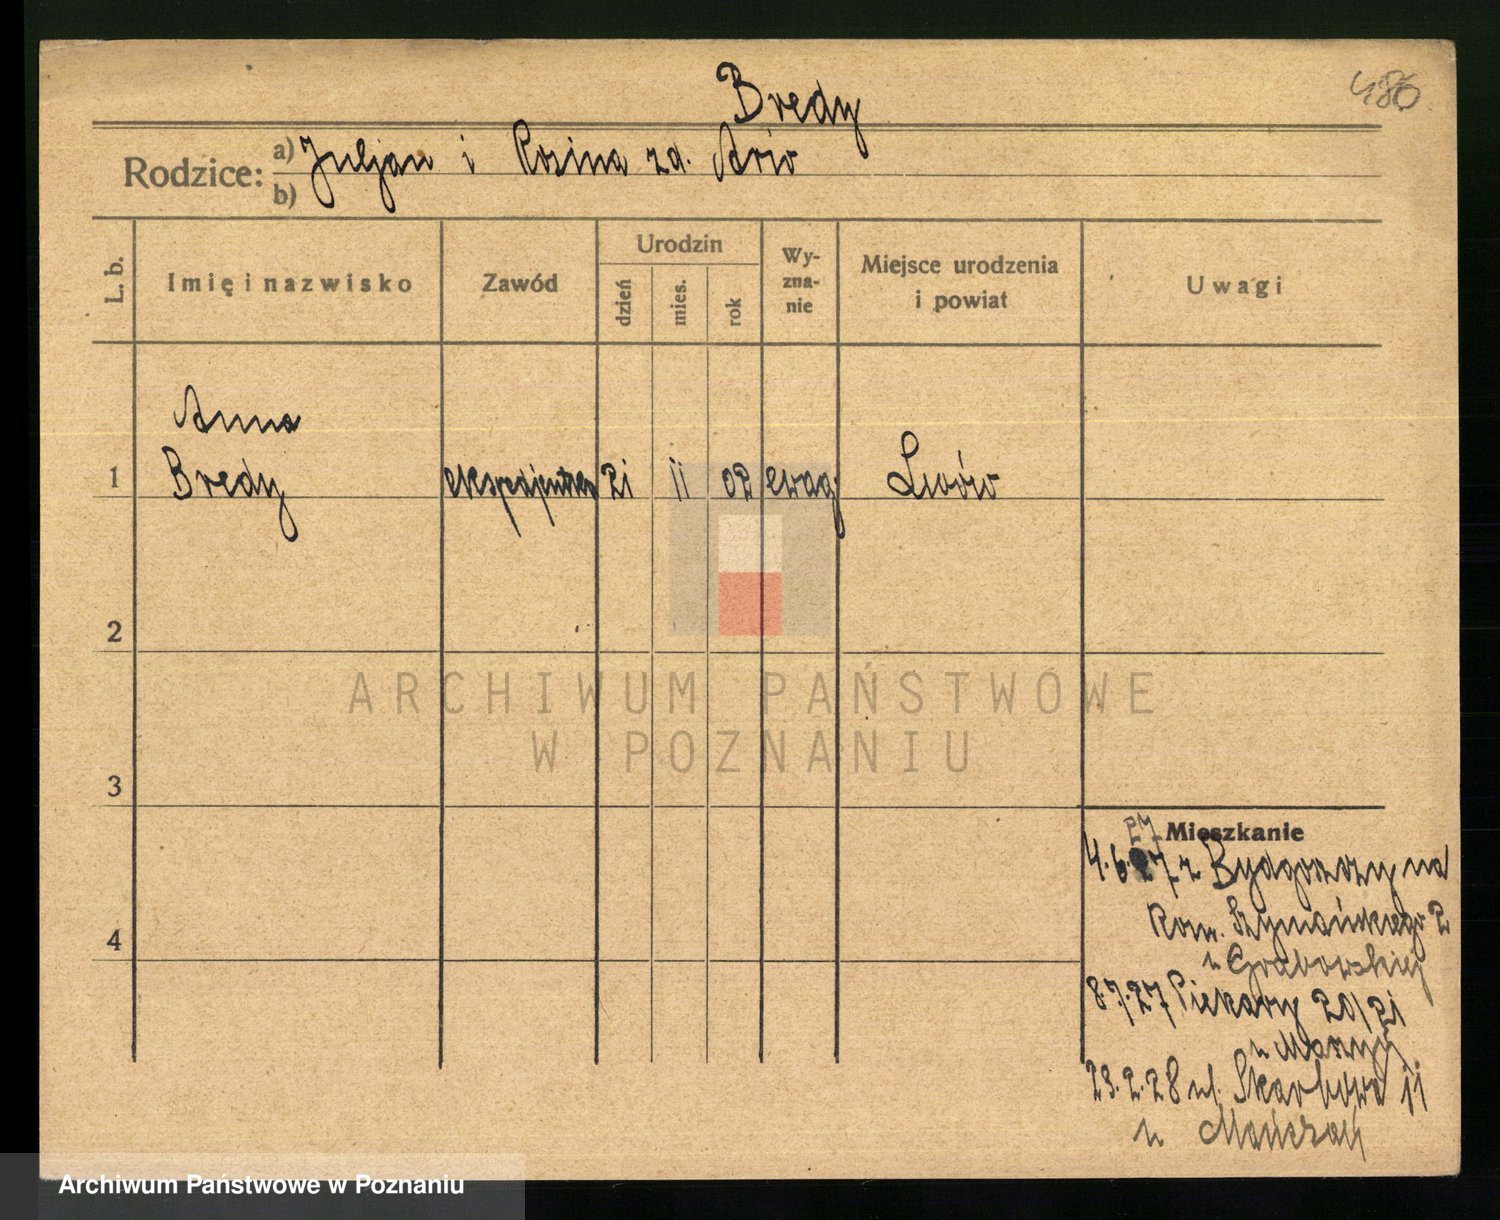 Bredy
486
Rodzice:
a) Juljan i Rozina zd. Aviv
b)
L. b.
Imię i nazwisko
Zawód
Urodzin
dzień
mies.
rok
Wy-
zna-
nie
Miejsce urodzenia
i powiat
Uwagi
Anna
1 Bredy ekspedjentka 21 11 02 ewag. Lwów
2
3
4
ARCHIWUM PAŃSTWOWE
W POZNANIU
27
Mieszkanie
4.6.27 z Bydgoszczy na
Szymańskiego 2
u Grabowskiej
8.7.27 Piekary 20/21
u
23.2.28 ul. Skarbowa 11
u
Archiwum Państwowe w Poznaniu